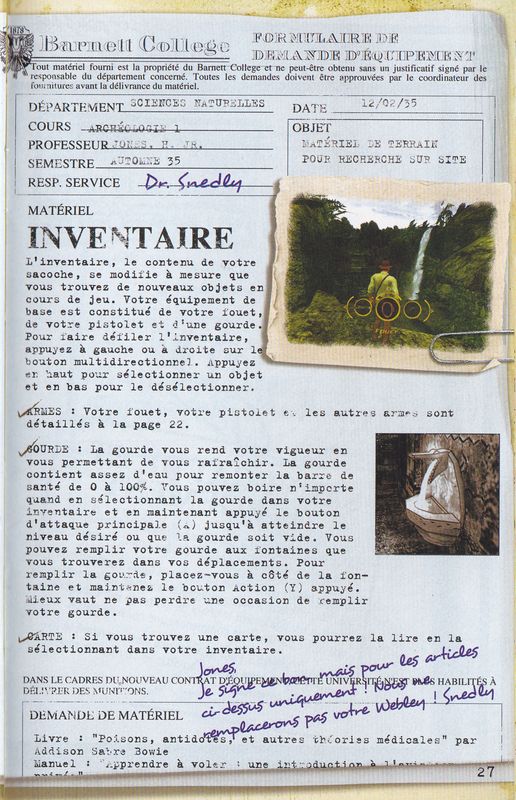 Barnett College
FORMULAIRE DE
DEMANDE D'ÉQUIPEMENT
Tout matériel fourni est la propriété du Barnett College et ne peut-être obtenu sans un justificatif signé par le
responsable du département concerné. Toutes les demandes doivent être approuvées par le coordinateur des
fournitures avant la délivrance du matériel.
DÉPARTEMENT SCIENCES NATURELLES
DATE 12/02/35
COURS ARCHÉOLOGIE 1
PROFESSEUR JONES, H. JR.
SEMESTRE AUTOMNE 35
RESP. SERVICE Dr. Snedly
OBJET
MATÉRIEL DE TERRAIN
POUR RECHERCHE SUR SITE
MATÉRIEL
INVENTAIRE
L'inventaire, le contenu de votre
sacoche, se modifie à mesure que
vous trouvez de nouveaux objets en
cours de jeu. Votre équipement de
base est constitué de votre fouet,
de votre pistolet et d'une gourde.
Pour faire défiler l'inventaire,
appuyez à gauche ou à droite sur le
bouton multidirectionnel. Appuyez
en haut pour sélectionner un objet
et en bas pour le désélectionner.
ARMES : Votre fouet, votre pistolet et les autres armes sont
détaillés à la page 22.
GOURDE : La gourde vous rend votre vigueur en
vous permettant de vous rafraîchir. La gourde
contient assez d'eau pour remonter la barre de
santé de 0 à 100%. Vous pouvez boire n'importe
quand en sélectionnant la gourde dans votre
inventaire et en maintenant appuyé le bouton
d'attaque principale (A) jusqu'à atteindre le
niveau désiré ou que la gourde soit vide. Vous
pouvez remplir votre gourde aux fontaines que
vous trouverez dans vos déplacements. Pour
remplir la gourde, placez-vous à côté de la fon-
taine et maintenez le bouton Action (Y) appuyé.
Mieux vaut ne pas perdre une occasion de remplir
votre gourde.
CARTE : Si vous trouvez une carte, vous pourrez la lire en la
sélectionnant dans votre inventaire.
Jones,
Je signe ce bon mais pour les articles
ci-dessus uniquement ! Nous ne
remplacerons pas votre Webley ! Snedly
DANS LE CADRES DU NOUVEAU CONTRAT D'ÉQUIPEMENT, CETTE UNIVERSITÉ N'EST PLUS HABILITÉS À
DÉLIVRER DES MUNITIONS.
DEMANDE DE MATÉRIEL
Livre : "Poisons, antidotes, et autres théories médicales" par
Addison Sabre Bowie
Manuel : "Apprendre à voler : une introduction à
27